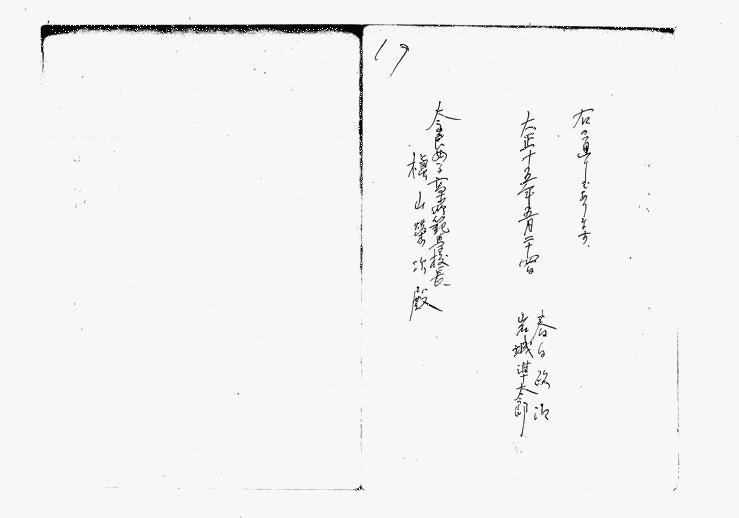 17
右の通りであります。
大正十五年五月二十四日
春日政治
岩城準太郎
奈良女子高等師範学校長
槇山榮次殿